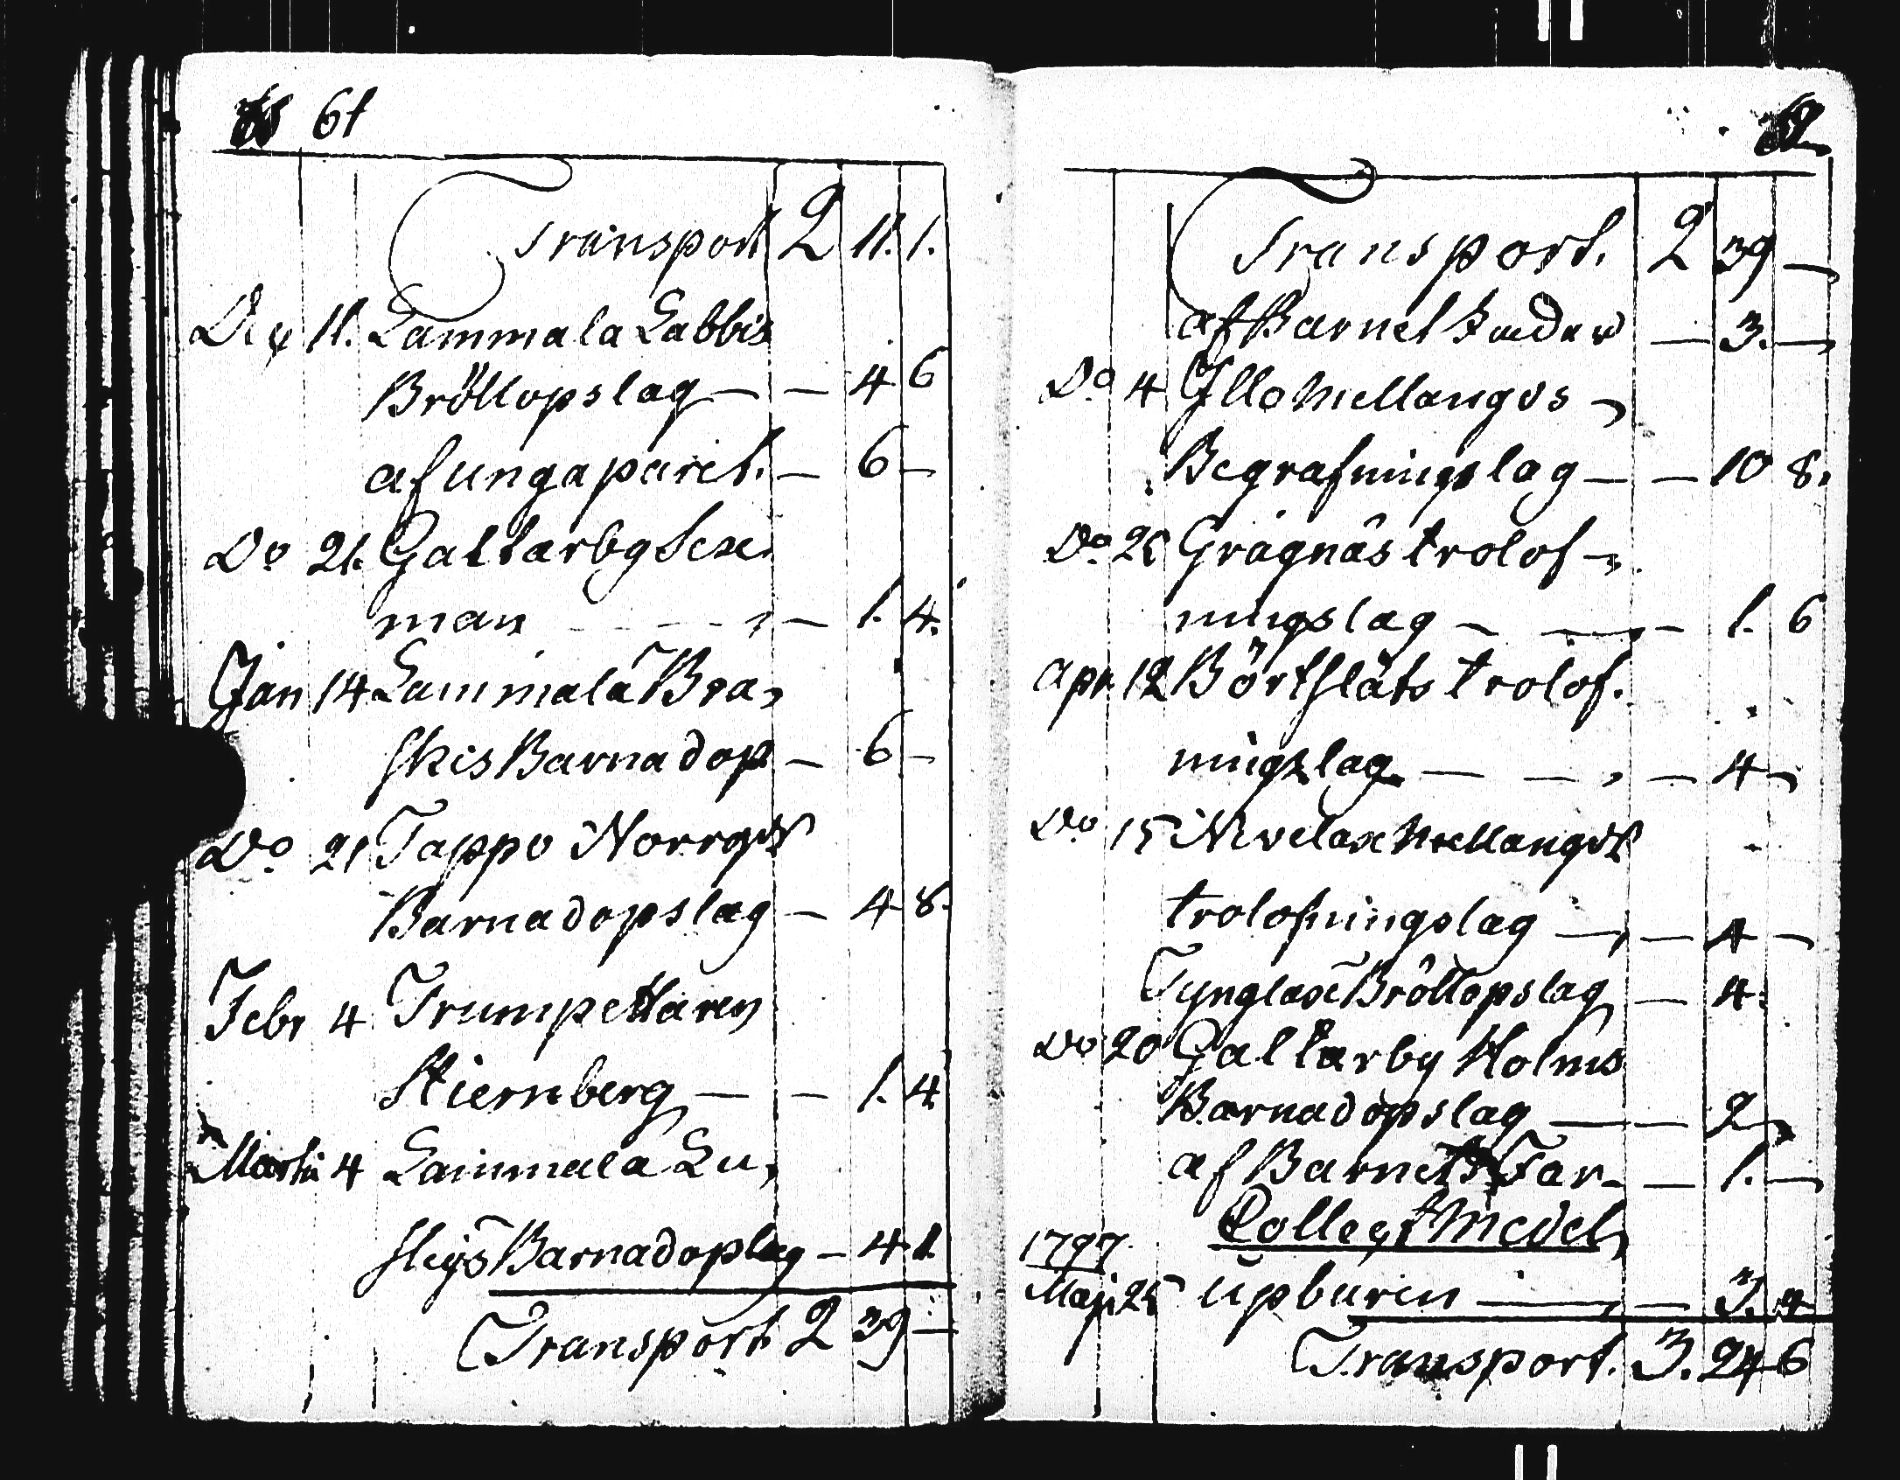 61
Transport 2 11. 1.
Dec 11. Lammala Labbis
Bröllopslag — — 4 6
af unga paret. — 6 —
Do 21. Galtarby Sex,
man — — 1. 4.
Jan 14 Lammala Bra,
skis Barnadop — 6 —
Do 21 Tappo Norrgds
Barnadopslag — 4 8.
Febr 4 Trumpettaren
Stiernberg — — 1. 4
Martii 4 Lammala Lu,
Barnadoplag — 4 1
Transport 2 39 —
62
Transport. 2 39 —
af Barnet — 3. —
Do 4 Illo Mellangds
Begrafningslag — — 10 8.
Do 25 Grågnäs trolof-
ningslag — — 1. 6
Apr. 12 Börtsläts trolof.
ningslag — — — 4 —
Do 15 Nivelax Mellangds
trolofningslag — — 4 —
Tynglax Bröllopslag — 4.
Do 20 Galtarby Holms
Barnadopslag — — 2 —
af Barnets Far — — 1. —
Collect Medel
1797
Maji 25 upburen — — 3. 4
Transport. 3. 24 6